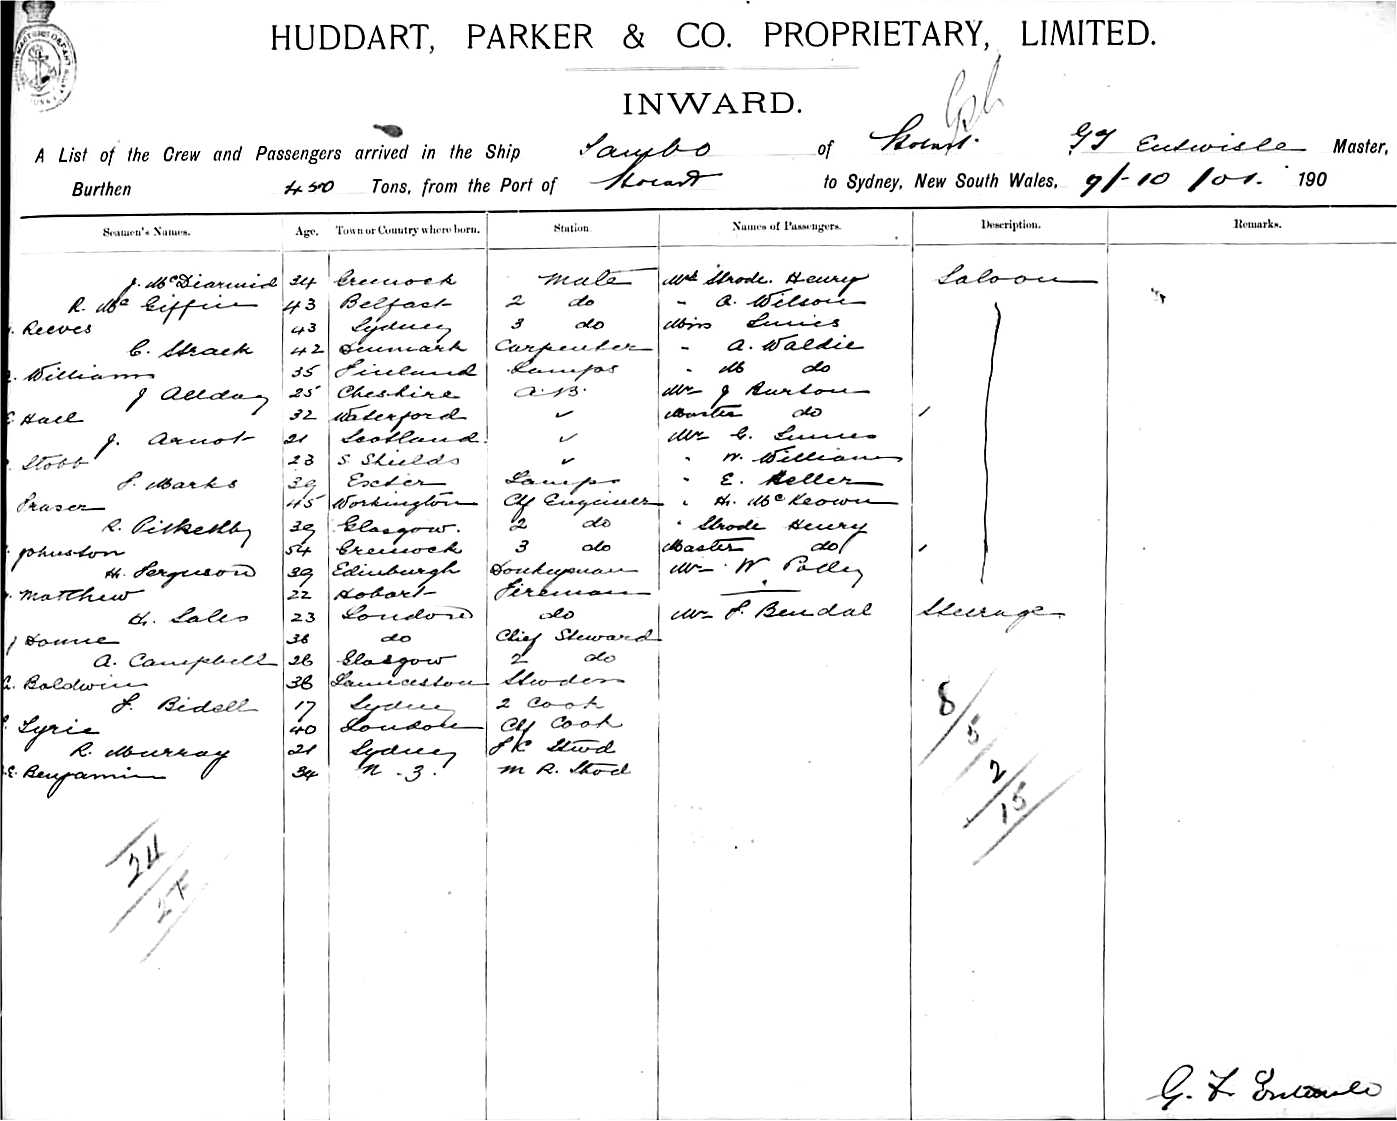 HUDDART, PARKER & CO. PROPRIETARY, LIMITED.
INWARD.
A List of the Crew and Passengers arrived in the Ship Sambo of Hobart. G F Entwisle Master,
Burthen 450 Tons, from the Port of Hobart to Sydney, New South Wales, 9/-10/01. 190
Seamen's Names. Age. Town or Country where born. Station Names of Passengers. Description. Remarks.
J. McDiarmid 34 Greenock Mate Mrs Strode Henry Saloon
R. Mc Giffin 43 Belfast 2 do " A. Wilson
Reeves 43 Sydney 3 do Miss Innes
C. Strack 42 Denmark Carpenter " A. Waldie
Williams 35 Finland Lamps " M do
J Allday 25 Cheshire A.B. Mr J Burton
E Hall 32 Waterford ✓ Master do /
J. Arnot 21 Scotland ✓ Mr C. Innes
Stobb 23 S. Shields ✓ " W. Williams
Marks 39 Exeter Lamps " E. Heller
Fraser 45 Workington Cf Engineer " H. McKeown
R. 39 Glasgow. 2 do " Strode Henry
Johnston 54 Greenock 3 do Master do /
H. Ferguson 39 Edinburgh Donkeyman Mr W Polley
Matthew 22 Hobart Fireman
H. Sales 23 London do Mr F. Bendal Steerage
J Downe 36 do Chief Steward
A. Campbell 26 Glasgow 2 do
Baldwin 36 Launceston Stwdess
F. Bidell 17 Sydney 2 Cook
Lyrie 40 London Cf Cook
R. Murray 21 Sydney F C Stwd
E. Benjamin 34 N.Z. M R. Stwd
8/5
2/15
24
27
G. F. Entwisle